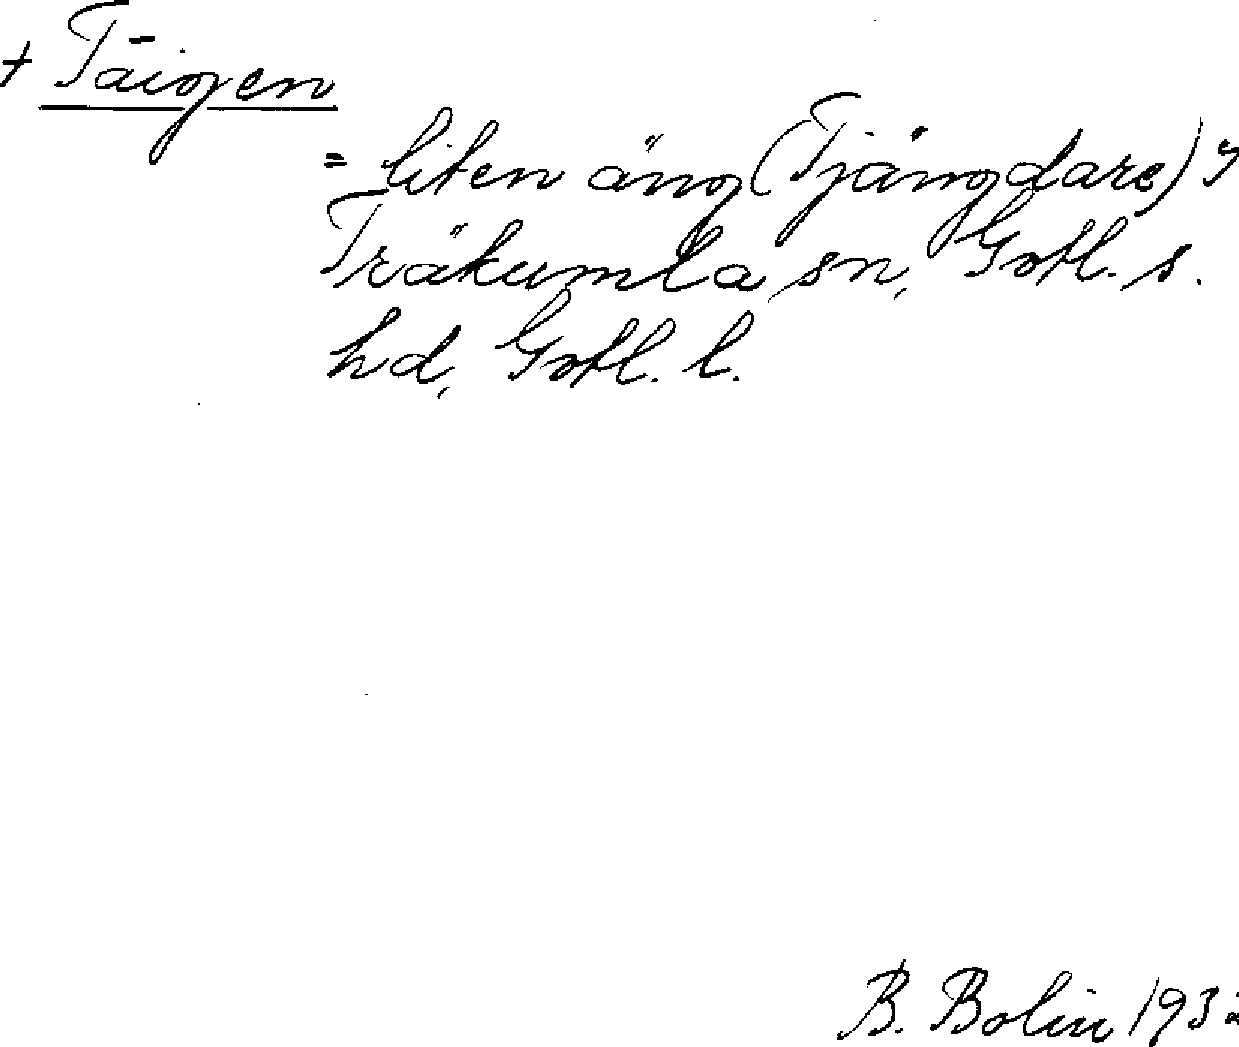 + Tāigen
= liten äng (Tjängdare) i
Träkumla sn, Gotl. s.
hd, Gotl. l.
B. Bolin 1932